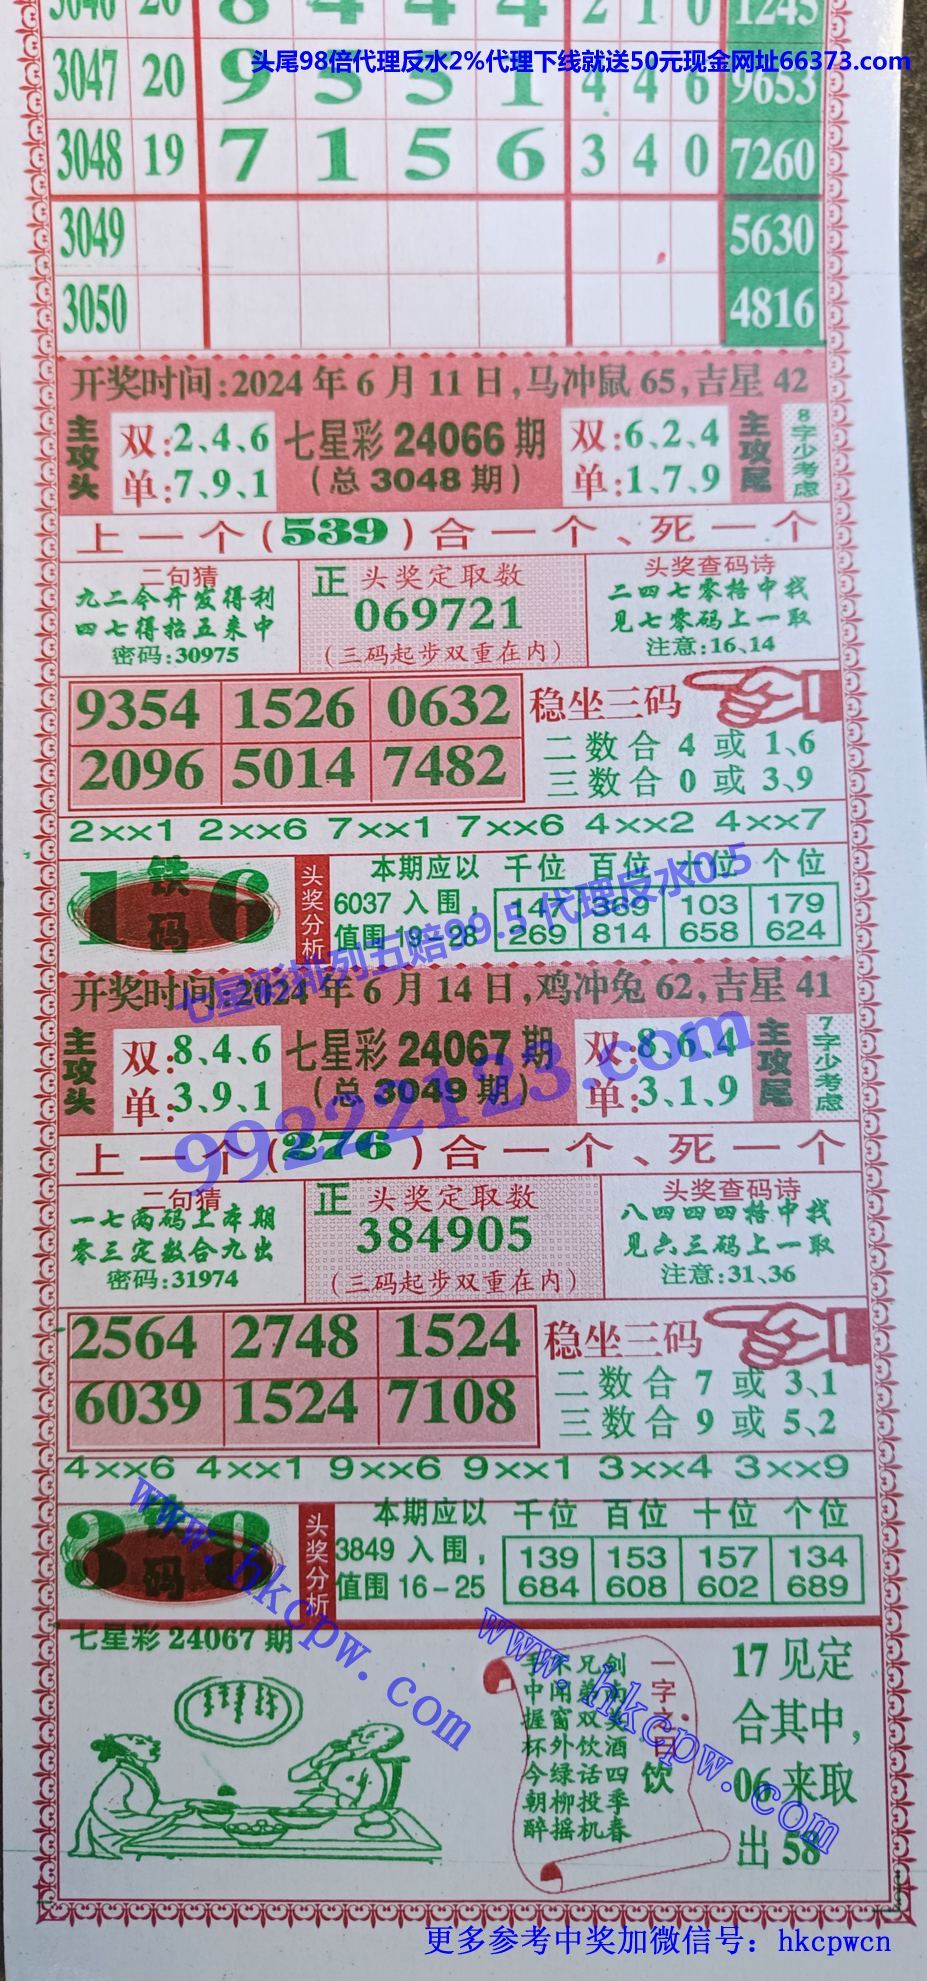 3046 20 8 4 4 4 2 1 0 1245
头尾98倍代理反水2%代理下线就送50元现金网址66373.com
3047 20 9 5 5 1 4 4 6 9653
3048 19 7 1 5 6 3 4 0 7260
3049 5630
3050 4816
开奖时间:2024年6月11日,马冲鼠65,吉星42
主攻头 双:2、4、6 七星彩24066期 双:6、2、4 主攻尾 8字少考虑
单:7、9、1 (总3048期) 单:1、7、9
上一个(539)合一个、死一个
二句猜 正 头奖定取数 头奖查码诗
九二今开发得利 069721 二四七零格中找
四七得拾五来中 见七零码上一取
密码:30975 (三码起步双重在内) 注意:16、14
9354 1526 0632 稳坐三码
二数合4或1、6
2096 5014 7482 三数合0或3、9
2××1 2××6 7××1 7××6 4××2 4××7
1 铁码 6 头奖分析 本期应以 千位 百位 十位 个位
6037入围, 147 369 103 179
值围19-28 269 814 658 624
七星彩排列五赔99.5 代理反水0.5
开奖时间:2024年6月14日,鸡冲兔62,吉星41
主攻头 双:8、4、6 七星彩24067期 双:8、6、4 主攻尾 7字少考虑
单:3、9、1 (总3049期) 单:3、1、9
99222123.com
上一个(276)合一个、死一个
二句猜 正 头奖定取数 头奖查码诗
一七两码上本期 384905 八四四四格中找
零三定数合九出 见六三码上一取
密码:31974 (三码起步双重在内) 注意:31、36
2564 2748 1524 稳坐三码
二数合7或3、1
6039 1524 7108 三数合9或5、2
4××6 4××1 9××6 9××1 3××4 3××9
3 码 8 头奖分析 本期应以 千位 百位 十位 个位
3849入围, 139 153 157 134
值围16-25 684 608 602 689
www.hkcpw.com
七星彩24067期
www.hkcpw.com
一字之曰 饮
剑南美酒四季春
兄弟双饮话投机
窗外绿柳摇
手中握杯今朝醉
17见定
合其中,
06来取
出58
更多参考中奖加微信号：hkcpwcn